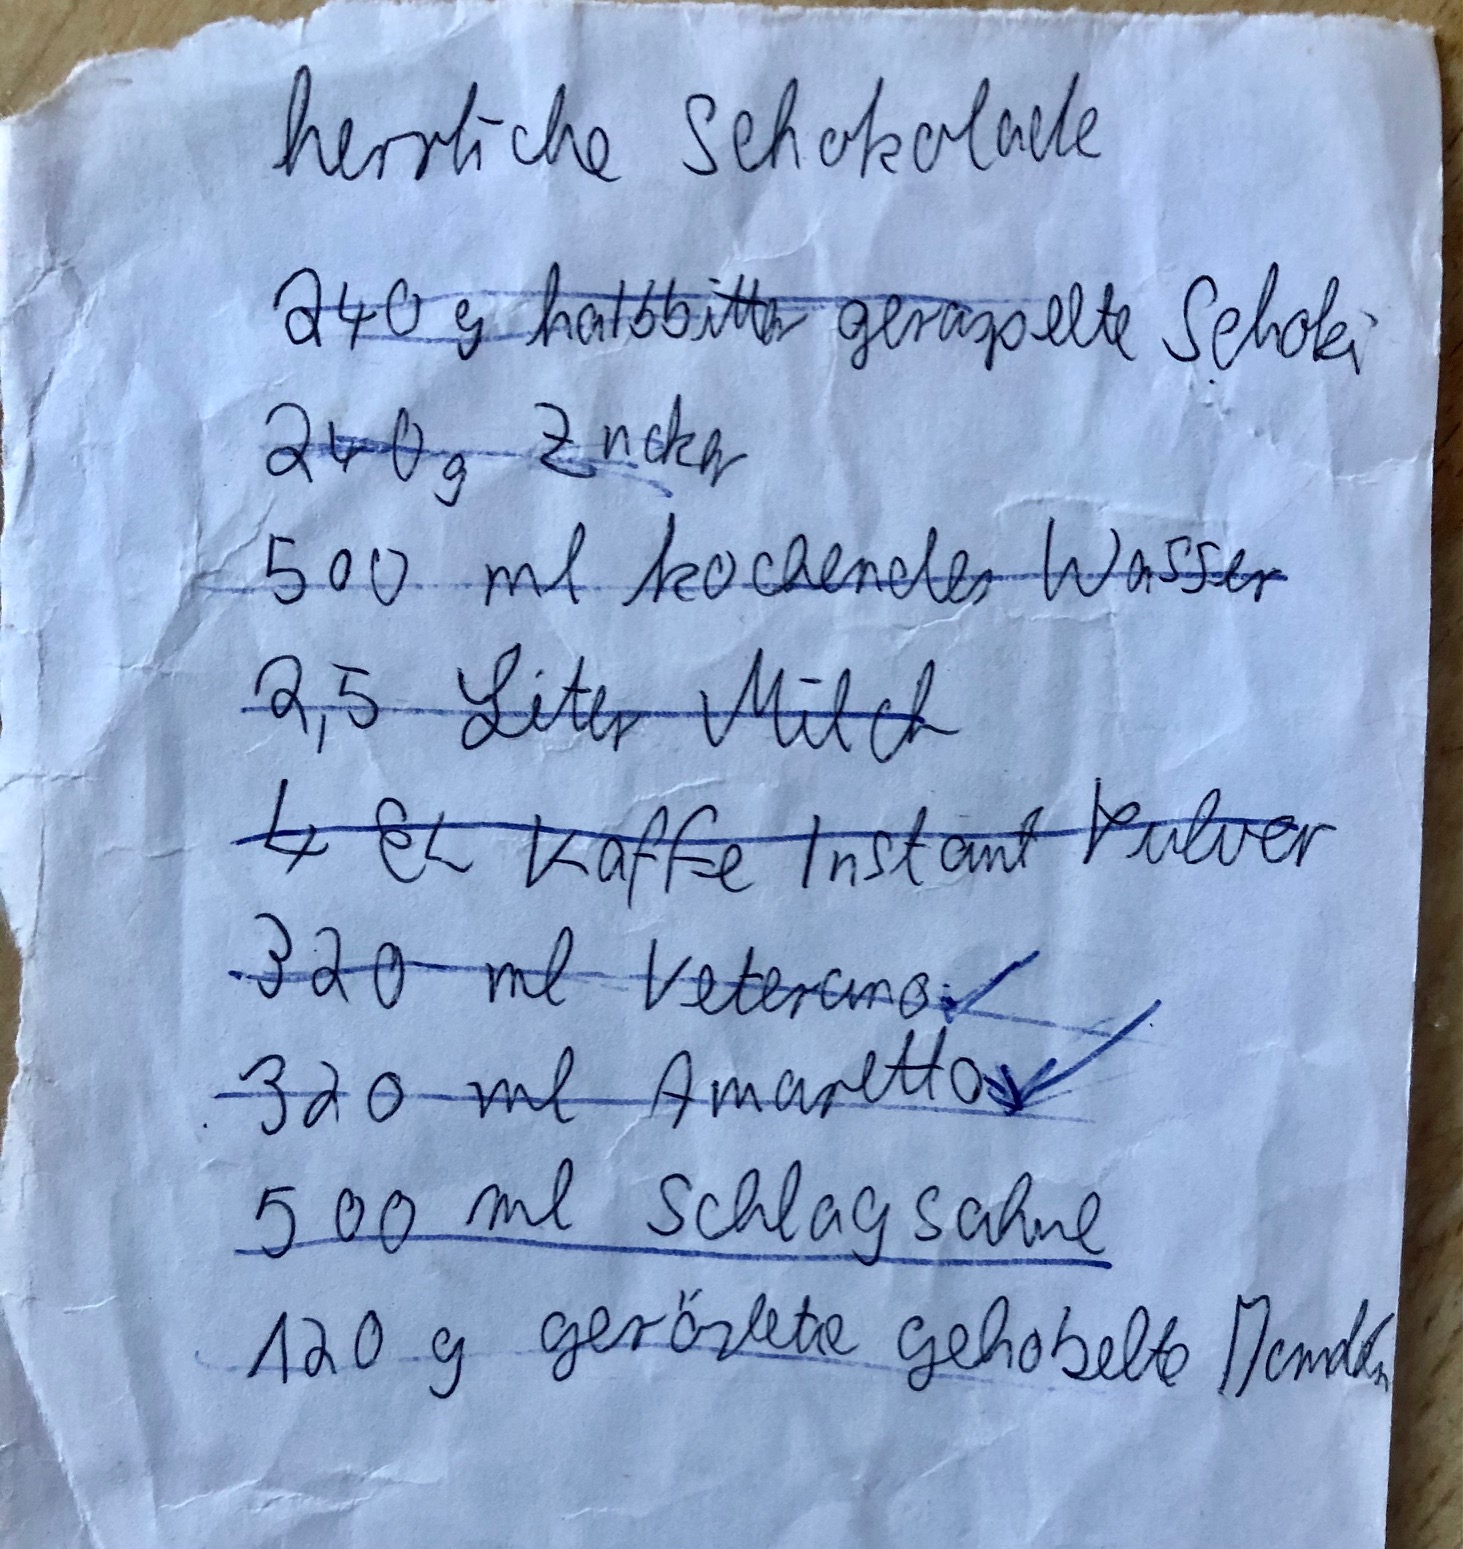 herrliche Schokolade
240 g halbbitter geraspelte Schoki
240g Zucker
500 ml kochendes Wasser
2,5 Liter Milch
4 EL Kaffe Instant Pulver
320 ml Veterano
320 ml Amaretto
500 ml Schlagsahne
120 g geröstete gehobelte Mandeln